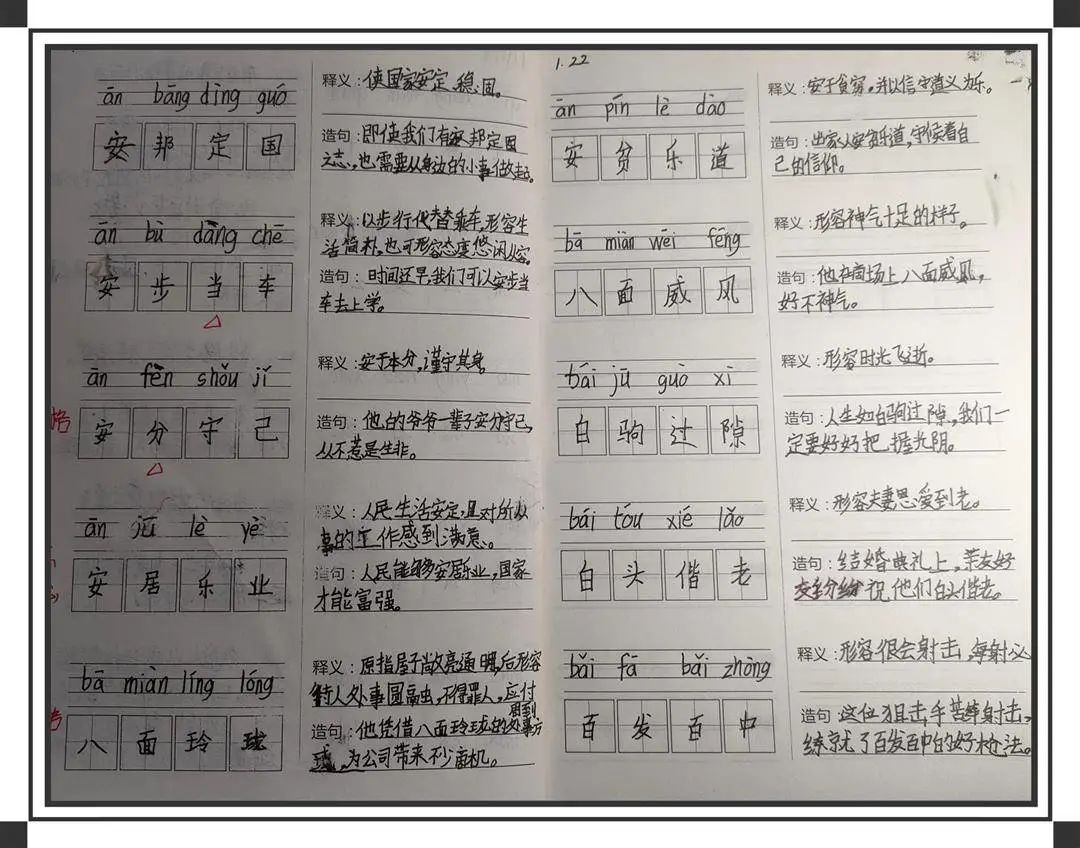 ān bāng dìng guó
安邦定国
释义：使国家安定、稳固。
造句：即使我们有安邦定国
之志，也需要从身边的小事做起。
ān bù dāng chē
安步当车
释义：以步行代替乘车，形容生
活简朴，也可形容态度悠闲从容。
造句：时间还早，我们可以安步当
车去上学。
ān fèn shǒu jǐ
安分守己
释义：安于本分，谨守其身。
造句：他的爷爷一辈子安分守己，
从不惹是生非。
ān jū lè yè
安居乐业
释义：人民生活安定，且对所从
事的工作感到满意。
造句：人民能够安居乐业，国家
才能富强。
bā miàn líng lóng
八面玲珑
释义：原指屋子敞亮通明，后形容
待人处事圆融，不得罪人，应付
周到
造句：他凭借八面玲珑的处事方
为公司带来不少商机。
1.22
ān pín lè dào
安贫乐道
释义：安于贫穷，并以信守道义为乐。
造句：出家人安贫乐道，守候着自
己的信仰。
bā miàn wēi fēng
八面威风
释义：形容神气十足的样子。
造句：他在商场上八面威风，
好不神气。
bái jū guò xì
白驹过隙
释义：形容时光飞逝。
造句：人生如白驹过隙，我们一
定要好好把握光阴。
bái tóu xié lǎo
白头偕老
释义：形容夫妻恩爱到老。
造句：结婚典礼上，亲友好
友纷纷祝他们白头偕老。
bǎi fā bǎi zhòng
百发百中
释义：形容很会射击，每射必
造句 这位狙击手苦练射击，
练就了百发百中的好枪法。